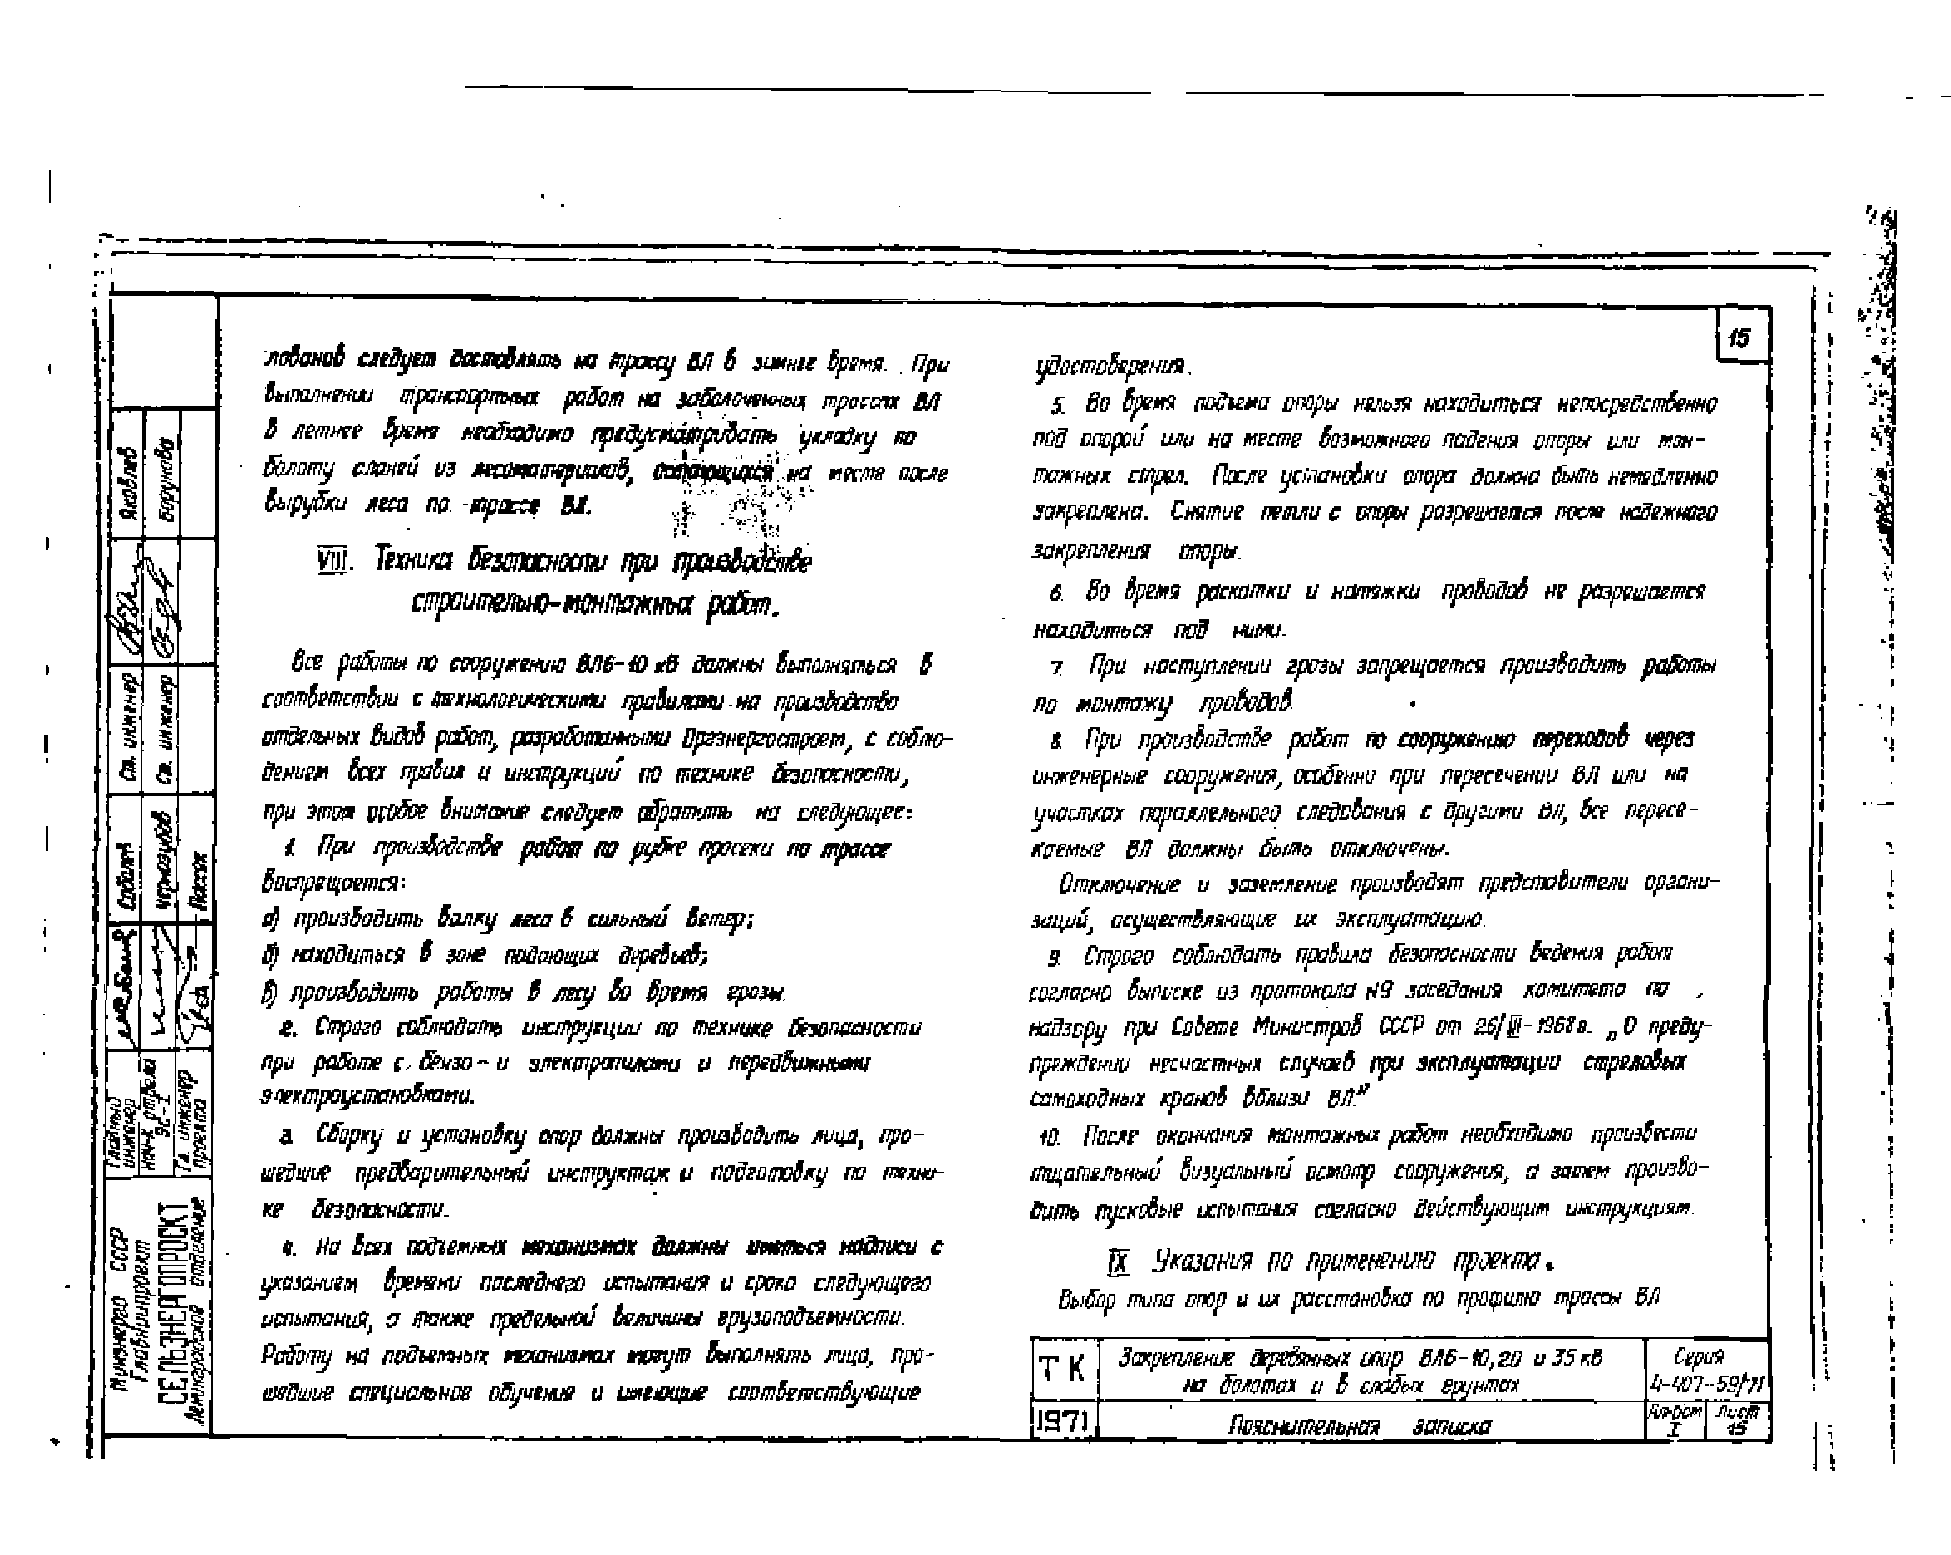 15
лованов следует доставлять на трассу ВЛ в зимнее время. При
выполнении транспортных работ на заболоченных трассах ВЛ
в летнее время необходимо предусматривать укладку по
болоту сланей из лесоматериалов, остающихся на месте после
вырубки леса по трассе ВЛ.
VIII. Техника безопасности при производстве
строительно-монтажных работ.
Все работы по сооружению ВЛ6-10 кВ должны выполняться в
соответствии с технологическими правилами на производство
отдельных видов работ, разработанными Оргэнергостроем, с соблю-
дением всех правил и инструкций по технике безопасности,
при этом особое внимание следует обратить на следующее:
1. При производстве работ по рубке просеки по трассе
воспрещается:
а) производить валку леса в сильный ветер;
б) находиться в зоне падающих деревьев;
в) производить работы в лесу во время грозы.
2. Строго соблюдать инструкции по технике безопасности
при работе с бензо- и электропилами и передвижными
электроустановками.
3. Сборку и установку опор должны производить лица, про-
шедшие предварительный инструктаж и подготовку по техни-
ке безопасности.
4. На всех подъемных механизмах должны иметься надписи с
указанием времени последнего испытания и срока следующего
испытания, а также предельной величины грузоподъемности.
Работу на подъемных механизмах могут выполнять лица, про-
шедшие специальное обучение и имеющие соответствующие
удостоверения.
5. Во время подъема опоры нельзя находиться непосредственно
под опорой или на месте возможного падения опоры или мон-
тажных стрел. После установки опора должна быть немедленно
закреплена. Снятие петли с опоры разрешается после надежного
закрепления опоры.
6. Во время раскатки и натяжки проводов не разрешается
находиться под ними.
7. При наступлении грозы запрещается производить работы
по монтажу проводов.
8. При производстве работ по сооружению переходов через
инженерные сооружения, особенно при пересечении ВЛ или на
участках параллельного следования с другими ВЛ, все пересе-
каемые ВЛ должны быть отключены.
Отключение и заземление производят представители органи-
заций, осуществляющие их эксплуатацию.
9. Строго соблюдать правила безопасности ведения работ
согласно выписке из протокола №9 заседания комитета по
надзору при Совете Министров СССР от 26/VII-1968г. „О преду-
преждении несчастных случаев при эксплуатации стреловых
самоходных кранов вблизи ВЛ"
10. После окончания монтажных работ необходимо произвести
тщательный визуальный осмотр сооружения, а затем произво-
дить пусковые испытания согласно действующим инструкциям.
IX Указания по применению проекта.
Выбор типа опор и их расстановка по профилю трассы ВЛ
ТК
1971
Закрепление деревянных опор ВЛ6-10, 20 и 35 кВ
на болотах и в слабых грунтах
Пояснительная записка
Серия
4-407-59/71
Альбом
I
Лист
15
Минэнерго СССР
Главниипроект
СЕЛЬЭНЕРГОПРОЕКТ
Ленинградское отделение
Главный
инженер
Нач-к отдела
ЭС-1
Гл. инженер
проекта
Соболев
Черноусов
Пассек
Ст. инженер
Ст. инженер
Яковлев
Борунова